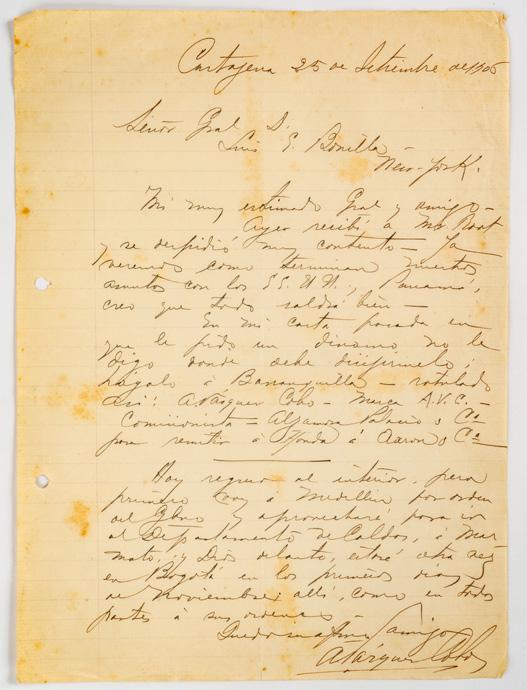 Cartagena 25 de Setiembre de 1906
Señor Gral D.
Luis E. Bonilla
New-York.
Mi muy estimado Gral y amigo-
Ayer recibí á Mr Root
y se despidió muy contento- Ya
veremos como terminan nuestros
asuntos con los EE. UU., Panamá,
creo que todo saldrá bien-
En mi carta pasada en
que le pido un dinamo no le
digo donde debe dirijirmelo;
hágalo á Barranquilla- rotulado
así: A Vásquez Cobo- Marca A.V.C.-
Comisionista- Palacio & Ca
para remitir á Honda á Aaron & Ca
Hoy regreso al interior, pero
primero voy á Medellín por orden
del Gbno y aprovecharé para ir
al Departamento de Caldas, á Mar
mato, y Dios delante, estaré otra vez
en Bogotá en los primeros días
de Noviembre; allí, como en todas
partes á sus ordenes-
Quedo su afmo amigo
A Vásquez Cobo